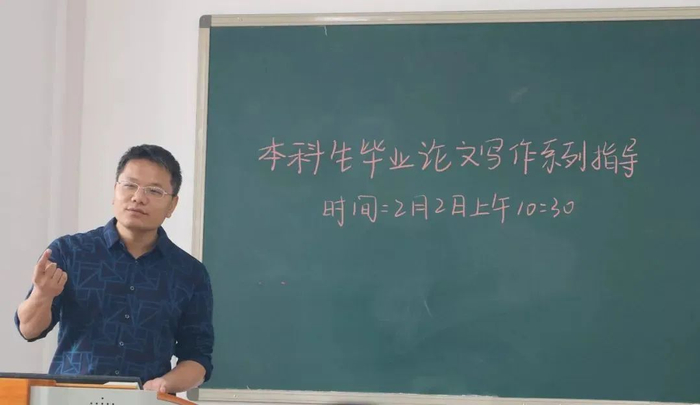 本科生毕业论文写作系列指导
时间:2月2日上午10:30